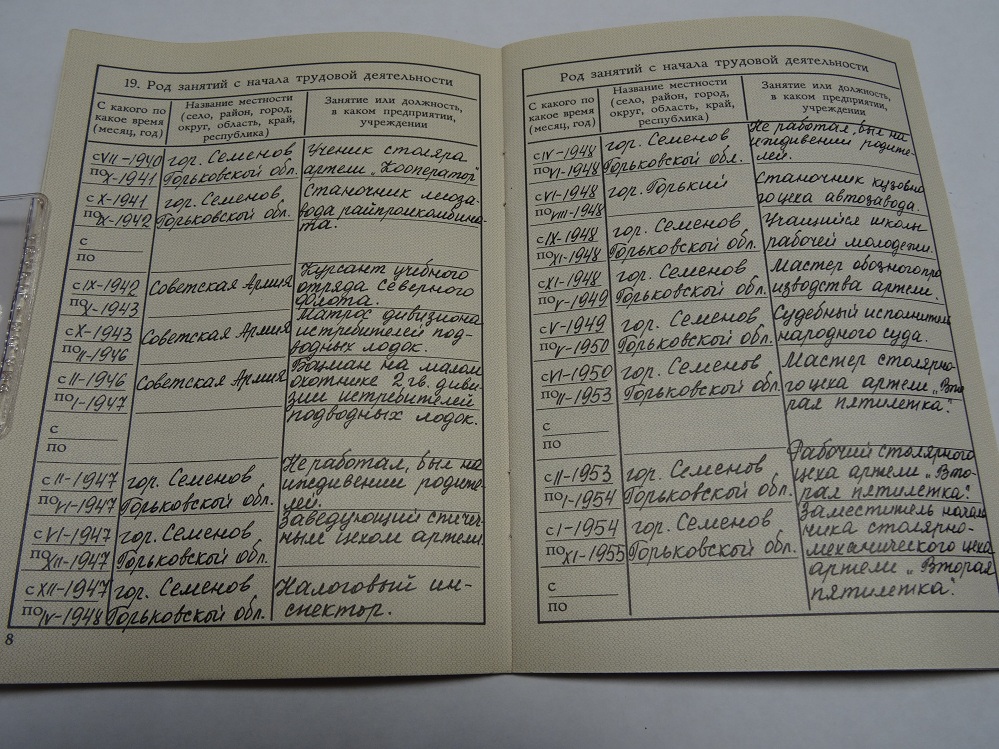 19. Род занятий с начала трудовой деятельности
С какого по какое время (месяц, год)
Название местности (село, район, город, округ, область, край, республика)
Занятие или должность, в каком предприятии, учреждении
с VII-1940 гор. Семенов Ученик столяра
по X-1941 Горьковской обл. артели „Кооператор"
с X-1941 гор. Семенов Станочник лесоза-
по IX-1942 Горьковской обл. вода райпромкомбина-
та.
с
по
Курсант учебного
с IX-1942 Советская Армия отряда Северного
по X-1943 флота.
Матрос дивизиона
с X-1943 Советская Армия истребителей под-
по II-1946 водных лодок.
Боцман на малом
с II-1946 Советская Армия охотнике 2 гв. диви-
по I-1947 зии истребителей
подводных лодок.
с
по
Не работал, был на
с II-1947 гор. Семенов иждивении родите-
по VI-1947 Горьковской обл. лей.
Заведующий спичеч-
с VI-1947 гор. Семенов ным цехом артели.
по XII-1947 Горьковской обл.
с XII-1947 гор. Семенов Налоговый ин-
по IV-1948 Горьковской обл. спектор.
8
Род занятий с начала трудовой деятельности
С какого по какое время (месяц, год)
Название местности (село, район, город, округ, область, край, республика)
Занятие или должность, в каком предприятии, учреждении
Не работал, был на
с IV-1948 гор. Семенов иждивении родите-
по VI-1948 Горьковской обл. лей.
с VI-1948 гор. Горький Станочник кузовно
по VIII-1948 го цеха автозавода.
с IX-1948 гор. Семенов Учащийся школы
по XI-1948 Горьковской обл. рабочей молодежи.
с XI-1948 гор. Семенов Мастер обозного про
по V-1949 Горьковской обл. изводства артели.
с V-1949 гор. Семенов Судебный исполнитель
по V-1950 Горьковской обл. народного суда.
с VI-1950 гор. Семенов Мастер столярно-
по II-1953 Горьковской обл. го цеха артели „Вто
рая пятилетка".
с
по
Рабочий столярного
с II-1953 гор. Семенов цеха артели „Вто-
по I-1954 Горьковской обл. рая пятилетка".
Заместитель началь
с I-1954 гор. Семенов ника столярно-
по XI-1955 Горьковской обл. механического цеха
артели „Вторая
с пятилетка".
по